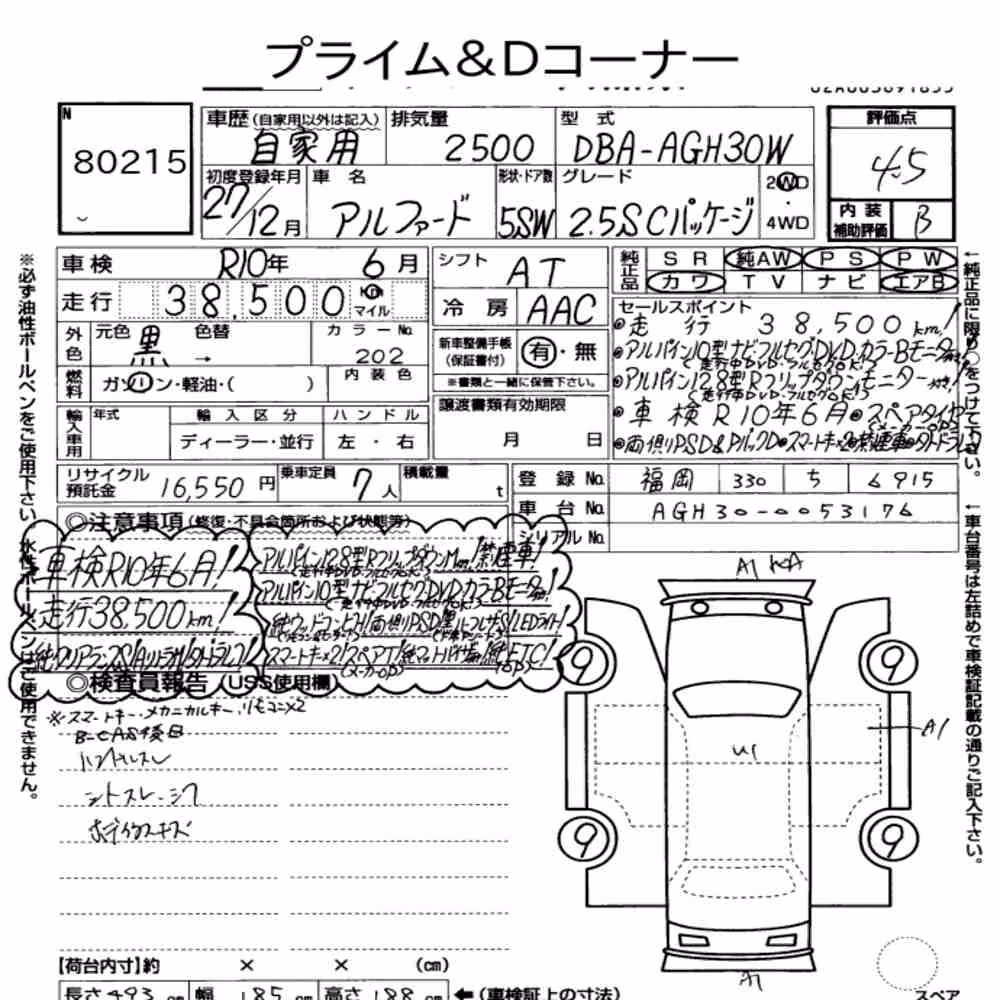 プライム&Dコーナー
N
80215
車歴 (自家用以外は記入)
自家用
排気量
2500
型 式
DBA-AGH30W
評価点
4.5
内装補助評価
B
初度登録年月
27/12月
車 名
アルファード
形状・ドア数
5SW
グレード
2.5S Cパッケージ
2WD
・
4WD
車検 R10年 6月
走行 38,500 Km マイル
外色 元色 黒 色替 → カラーNo. 202
燃料 ガソリン・軽油・( ) 内装色
輸入車用 年式 輸入区分 ハンドル
ディーラー・並行 左・右
シフト AT
冷房 AAC
新車整備手帳 (保証書付) 有・無
※書類と一緒に保管下さい。
譲渡書類有効期限
月 日
純正品 SR 純AW PS PW
カワ TV ナビ エアB
セールスポイント
◎走 行 38,500km!
◎アルパイン10型ナビ・フルセグ・DVD・カラーBモニター
(走行中DVD・フルセグOK!)
◎アルパイン12.8型Rフリップダウンモニター
(走行中DVD・フルセグOK!)
◎車検R10年6月 ◎スペアタイヤ
(メーカーOP)
◎両側PSD&PバックD◎スマートキー×2◎禁煙車
リサイクル預託金 16,550円 乗車定員 7人 積載量 t
登録No. 福岡 330 ち 6915
車台No. AGH30-0053176
シリアルNo.
◎注意事項(修復・不具合箇所および状態等)
車検R10年6月!
走行38,500km!
アルパイン12.8型RフリップダウンM 禁煙車!
(走行中DVD・フルセグOK!)
アルパイン10型ナビ・フルセグ・DVD・カラーBモニター!
(走行中DVD・フルセグOK!)
純ウッドコンビH!両側PSD!黒ハーフレザーS!LEDライト!
スマートキー×2!スペアT!純マット ETC!
(メーカーOP)
◎検査員報告 (USS使用欄)
※スマートキー・メカニカルキー・リモコン×2
B-CAS後日
ハンドルスレ
シートスレ・シワ
ボディウスキズ
A1
A1
U1
A1
9
9
9
9
スペア
【荷台内寸】約 × × (cm)
長さ 493 cm 幅 185 cm 高さ 188 cm ←(車検証上の寸法)
※必ず油性ボールペンをご使用下さい。水性ボールペンはご使用できません。
←純正品に限り○をつけて下さい。
←車台番号は左詰めで車検証記載の通りご記入下さい。